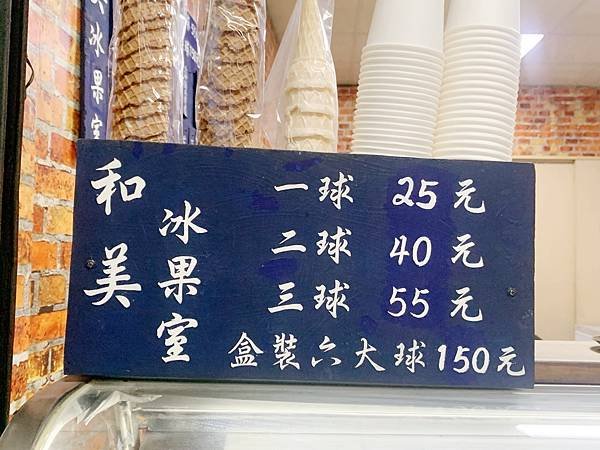 冰果室
和美
冰果室
一球 25元
二球 40元
三球 55元
盒裝六大球150元